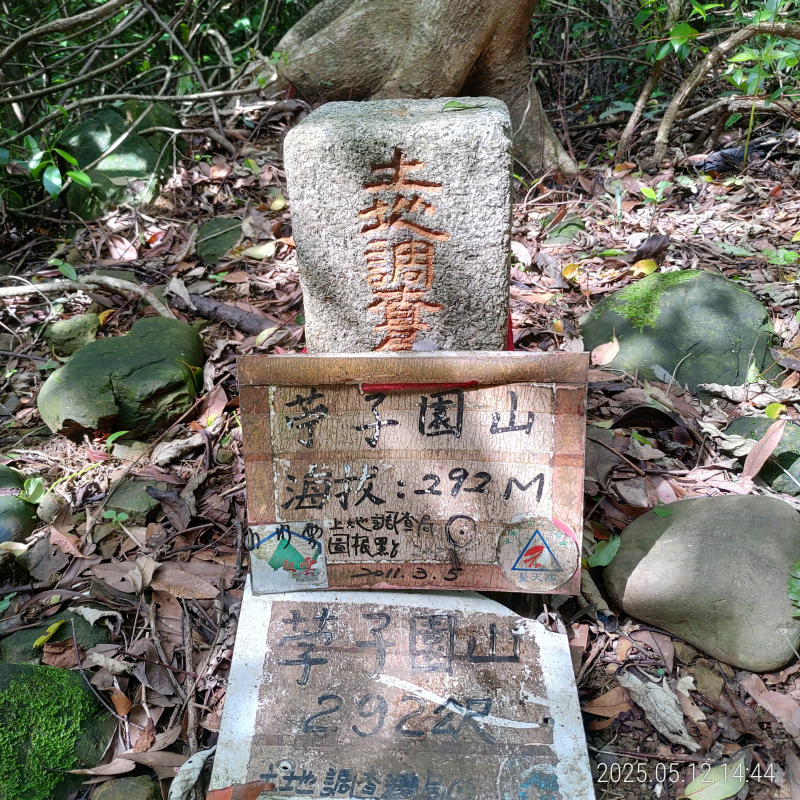 土地調查局
芧子園山
海抜:292M
土地調查局
圖根點
2011.3.5
藍天隊
芧子園山
292公尺
土地調查
2025.05.12 14:44